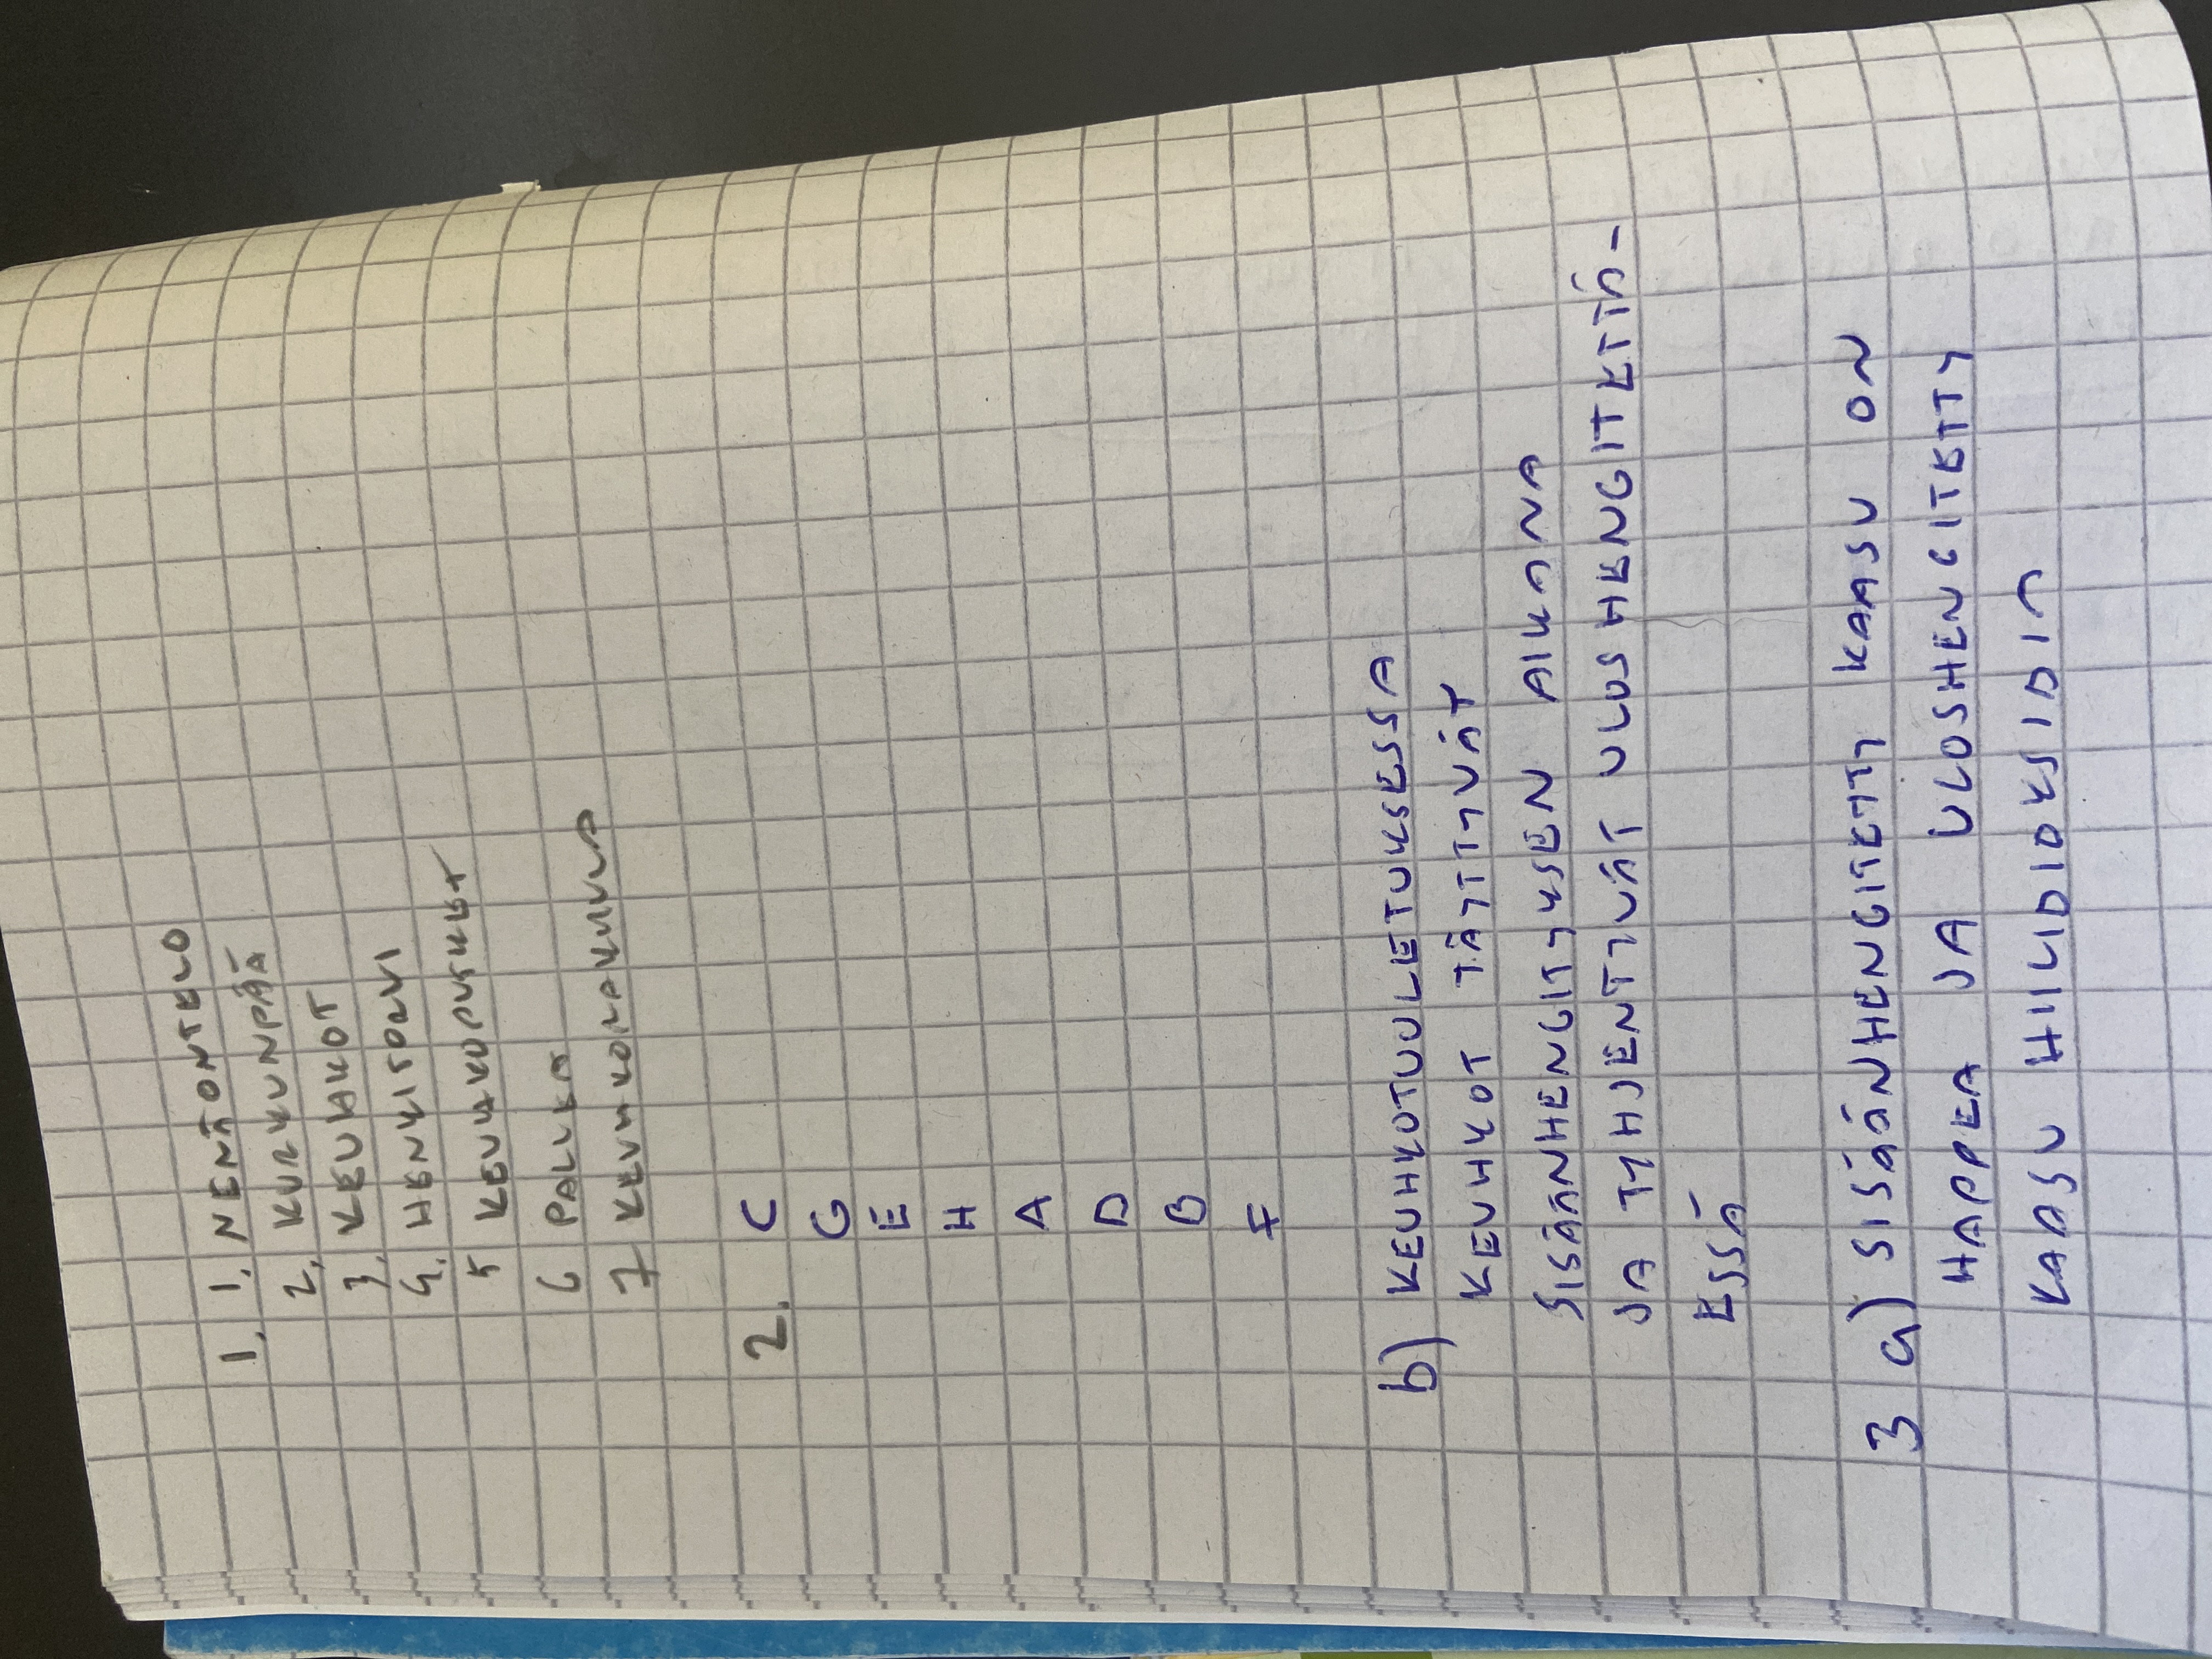 1. 1. NENÄONTELO
2. KURKUNPÄÄ
3. KEUHKOT
4. HENKITORVI
5 KEUHKOPUSSIT
6 PALLEA
7 KEUHKORAKKULA
2. C
G
E
H
A
D
B
F
b) KEUHKOTUULETUKSESSA
KEUHKOT TÄYTTYVÄT
SISÄÄNHENGITYKSEN AIKANA
JA TYHJENTYVÄT ULOSHENGITETTÄ-
ESSÄ
3 a) SISÄÄNHENGITETTY KAASU ON
HAPPEA JA ULOSHENGITETTY
KAASU HIILIDIOKSIDIA